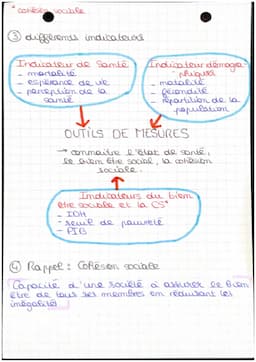 * cohésion sociale
③ différents indicateurs
Indicateur de Santé
- mortalité
- espérance de vie
- perception de la
santé
Indicateur démogra-
phique
- natalité
- fécondité
- répartition de la
population
OUTILS DE MESURES
→ connaitre l'état de santé,
le bien être social, la cohésion
sociale.
Indicateurs du bien
être sociale et la CS*
- IDH
- seuil de pauvreté
- PIB
④ Rappel : Cohésion sociale
Capacité d'une société à assurer le bien
être de tous ses membres en réduisant les
inégalités